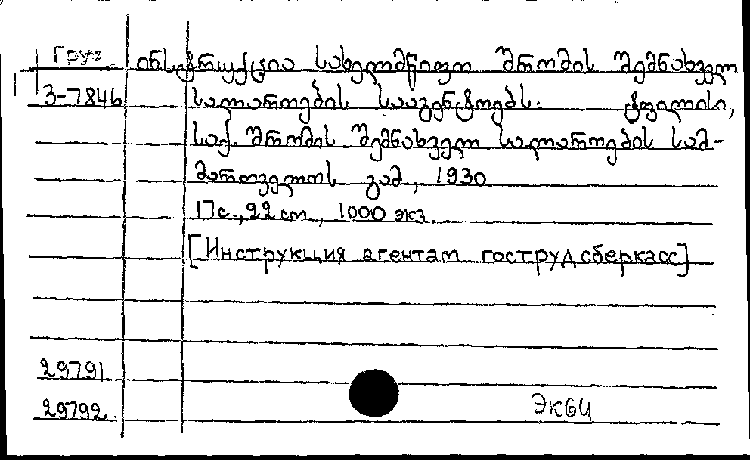 Груз
ინსტრუქცია სახელმწიფო შრომის შემნახველ
3-7846 სალაროების სააგენტოებს. ტფილისი,
საქ. შრომის შემნახველ სალაროების სამ-
მართველოს გამ., 1930
17 с., 22 cm, 1000 экз.
[Инструкция агентам гострудсберкасс]
29791
29792